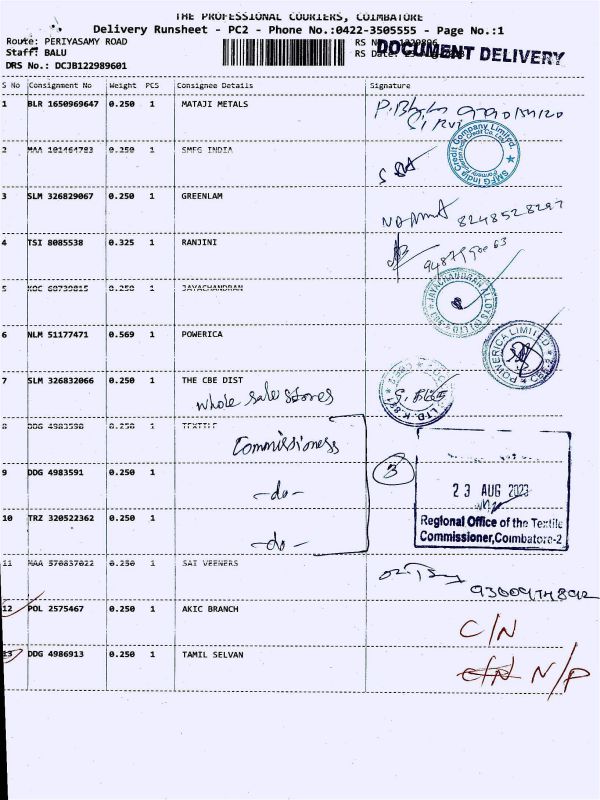 THE PROFESSIONAL COURIERS, COIMBATORE
Delivery Runsheet - PC2 - Phone No.:0422-3505555 - Page No.:1
Route: PERIYASAMY ROAD
Staff: BALU
DRS No.: DCJB122989601
RS Date:
DOCUMENT DELIVERY
S No Consignment No Weight PCS Consignee Details Signature
1 BLR 1650969647 0.250 1 MATAJI METALS
2 MAA 101464783 0.250 1 SMFG INDIA
SMFG India Credit Company Limited.
3 SLM 326829067 0.250 1 GREENLAM
8248528297
4 TSI 8085538 0.325 1 RANJINI
5 KOC 60739815 0.250 1 JAYACHANDRAN
JAYACHANDRAN ALLOYS (P) LTD
6 NLM 51177471 0.569 1 POWERICA
POWERICA LIMITED
7 SLM 326832066 0.250 1 THE CBE DIST
whole sale stores
8 DDG 4983590 0.250 1 TEXTILE
Commissioness
9 DDG 4983591 0.250 1
-do-
10 TRZ 320522362 0.250 1
-do-
3
23 AUG 2023
Regional Office of the Textile
Commissioner,Coimbatore-2
11 MAA 570837022 0.250 1 SAI VEENERS
12 POL 2575467 0.250 1 AKIC BRANCH
C/N
13 DDG 4986913 0.250 1 TAMIL SELVAN
C/N N/P